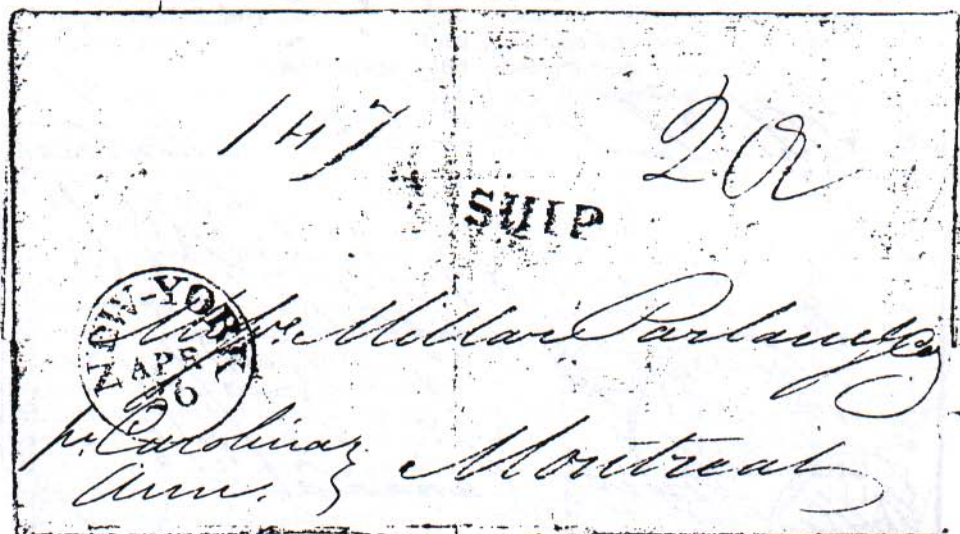 1H7 20
SHIP
NEW-YORK
APR
6
Millar Parlane & Co
pr Carolina &
Ann. Montreal